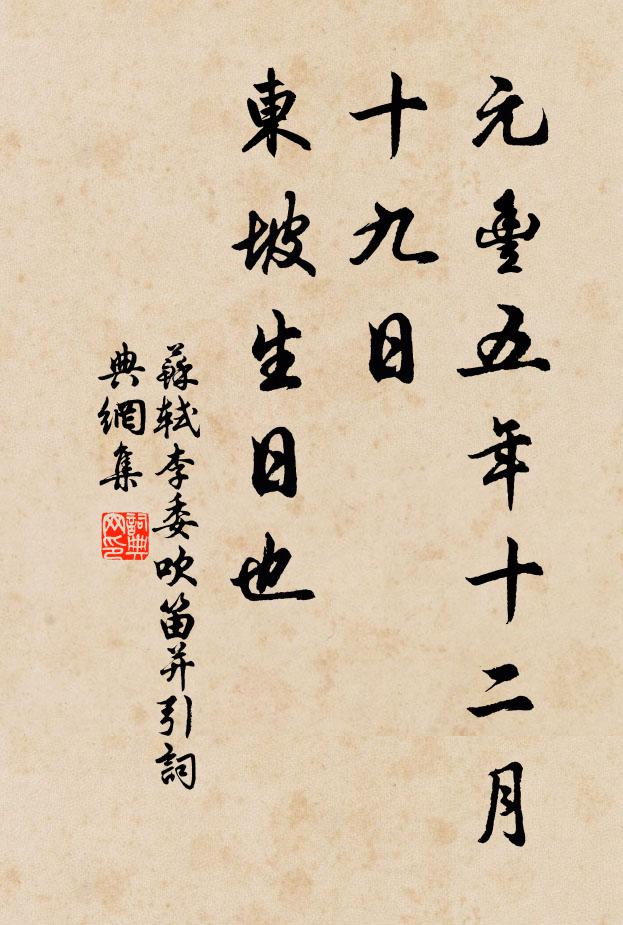 元豐五年十二月
十九日
東坡生日也
蘇軾李委吹笛并引詞
典網集
詞典
网印